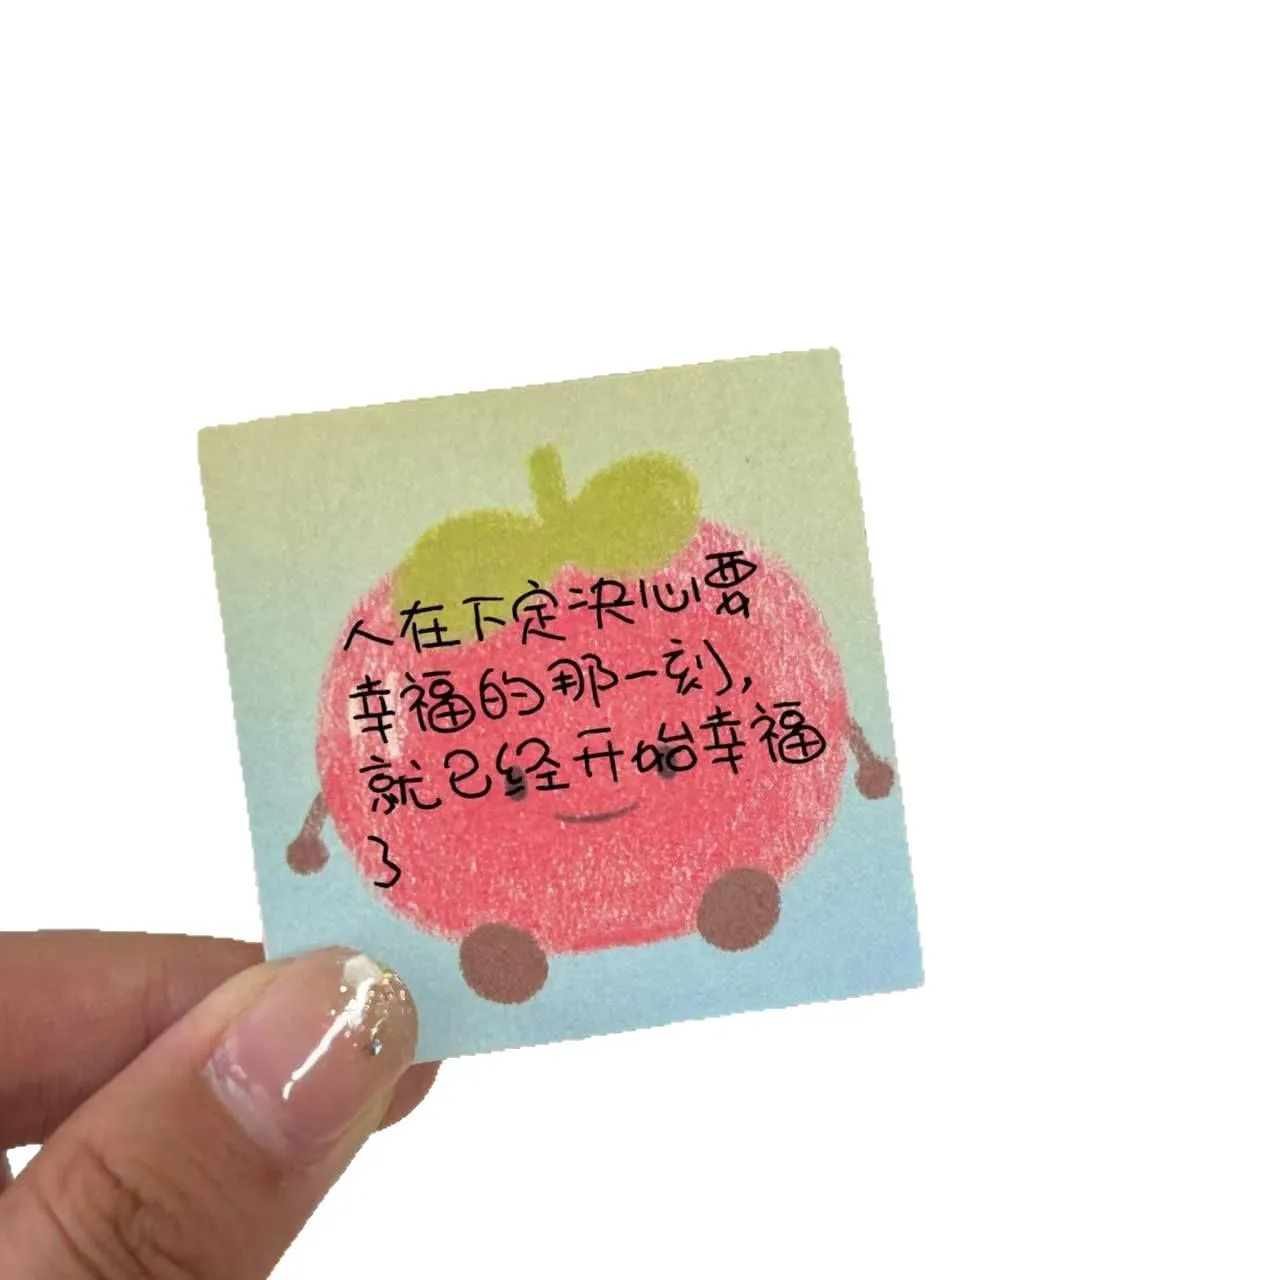 人在下定决心要
幸福的那一刻,
就已经开始幸福
了